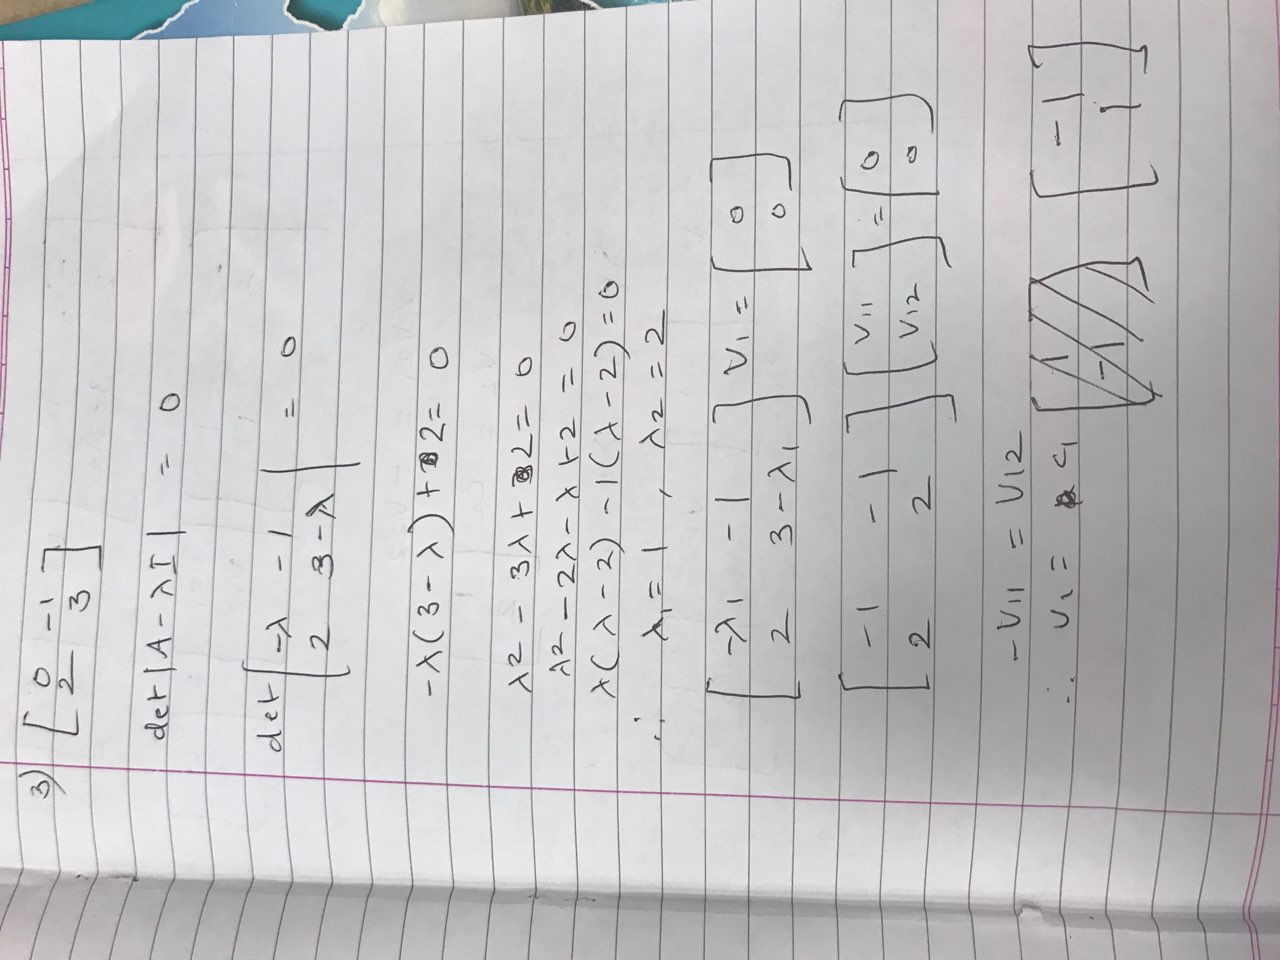 3) [ 0 -1
2 3 ]
det |A - λI| = 0
det | -λ -1 | = 0
2 3-λ
-λ(3 - λ) + 2 = 0
λ2 - 3λ + 2 = 0
λ2 - 2λ - λ + 2 = 0
λ(λ - 2) - 1(λ - 2) = 0
∴ λ1 = 1 , λ2 = 2
[ -λ1 -1 ] V1 = [ 0 ]
2 3-λ1 0
[ -1 -1 ] [ V11 ] = [ 0 ]
2 2 V12 0
-V11 = V12
∴ V1 = C1 [ 1 ] [ -1 ]
-1 1